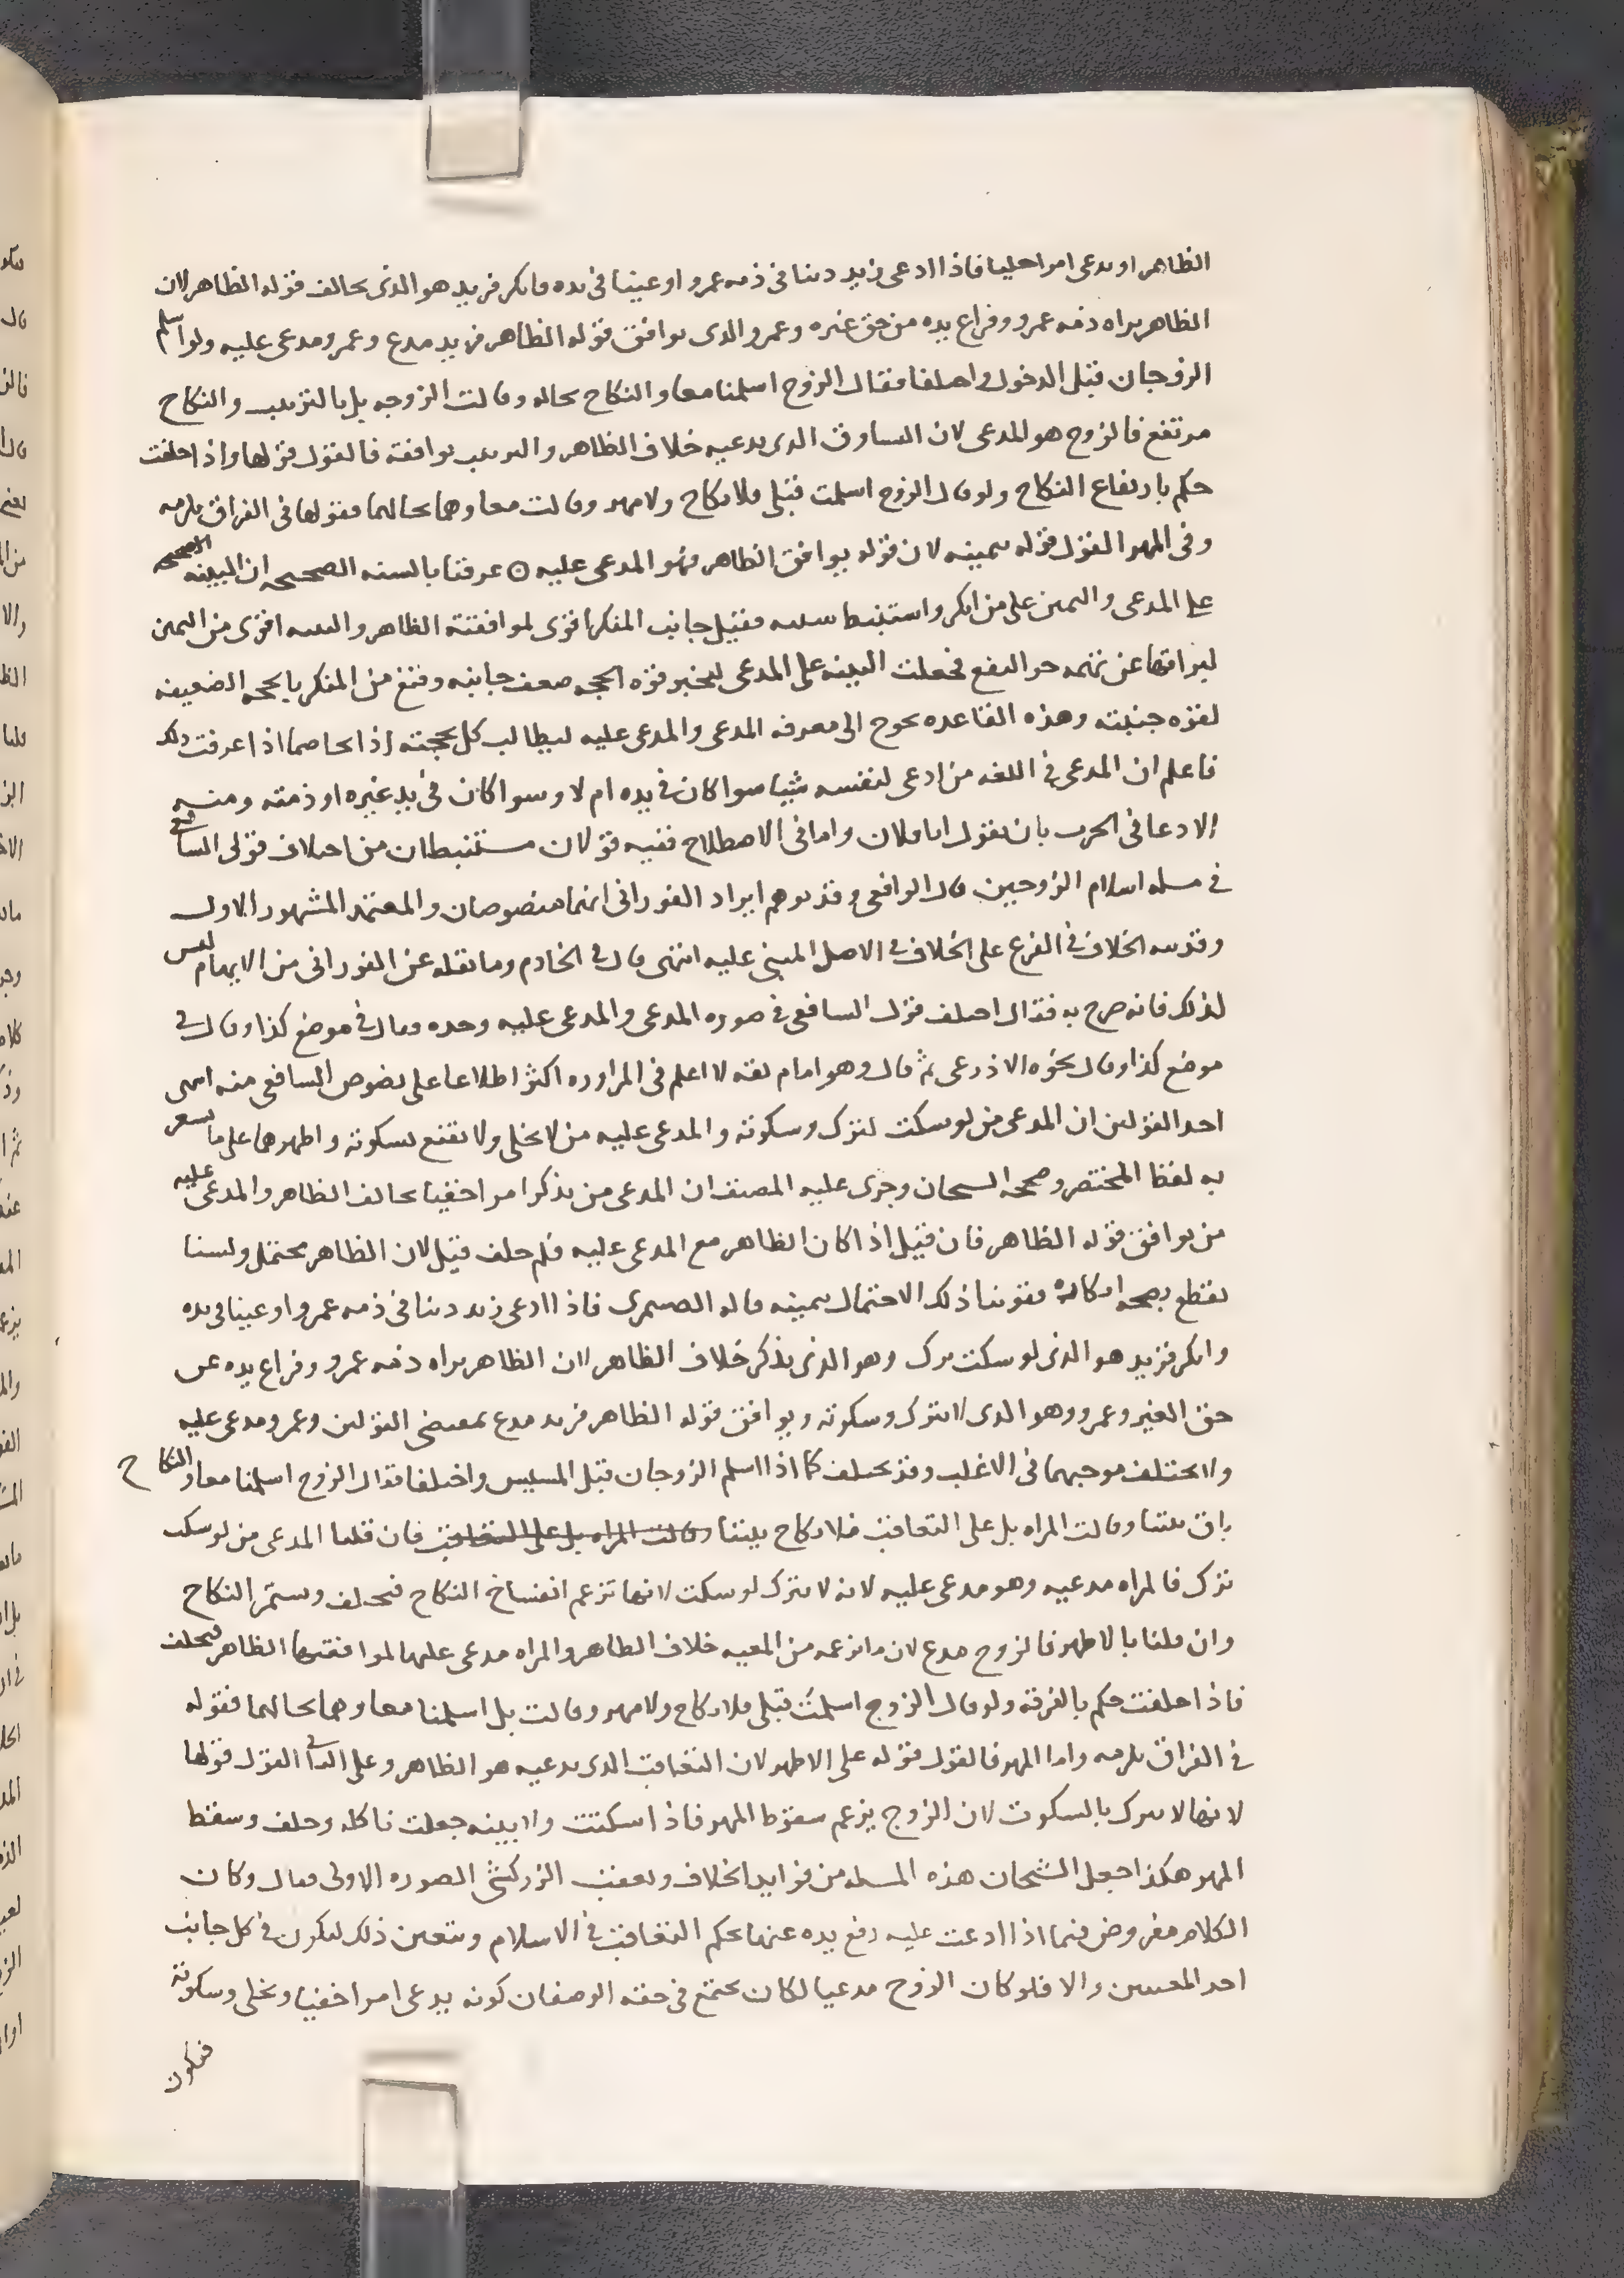 الظاهر او يدعى امرا جليا فاذا ادعى زيد دينا فى ذمه عمرو او عينا فى يده فانكر فزيد هو الذى يخالف قوله الظاهر لان
الظاهر براه ذمه عمرو وفراغ يده من حق غيره وعمرو الذى يوافق قوله الظاهر فزيد مدع وعمرو مدعى عليه ولو اسلم
الزوجان قبل الدخول واختلفا فقال الزوج اسلمنا معا والنكاح بحاله وقالت الزوجه بل بالترتيب والنكاح
مرتفع فالزوج هو المدعى لان التساوق الذى يدعيه خلاف الظاهر والترتيب يوافقه فالقول قولها واذا حلفت
حكم بارتفاع النكاح ولو قال الزوج اسلمت قبلى فلا نكاح ولا مهر وقالت معا وهما بحالهما فقوله فى الفراق يلزمه
وفى المهر القول قوله بيمينه لان قوله يوافق الظاهر فهو المدعى عليه ⊙ عرفنا بالسنه الصحيحه ان البينه الصحيحه
على المدعى واليمين على من انكر واستنبط سببه فقيل جانب المنكر اقوى لموافقته الظاهر والبينه اقوى من اليمين
لبراتها عن تهمه جر النفع فجعلت البينه على المدعى لتجبر قوه الحجه ضعف جانبه وقنع من المنكر بالحجه الضعيفه
لقوه جنبته وهذه القاعده تحوج الى معرفه المدعى والمدعى عليه ليطالب كل بحجته اذا تخاصما اذا عرفت ذلك
فاعلم ان المدعى فى اللغه من ادعى لنفسه شيا سوا كان فى يده ام لا وسوا كان فى يد غيره او ذمته ومنه
الادعا فى الحرب بان يقول انا فلان واما فى الاصطلاح ففيه قولان مستنبطان من اختلاف قولى الشافعى
فى مسله اسلام الزوجين قال الرافعى وقد يوهم ايراد الفورانى انهما منصوصان والمعتمد المشهور الاول
وقد يبنى الخلاف فى الفرع على الخلاف فى الاصل المبنى عليه انتهى قال فى الخادم وما نقله عن الفورانى من الايهام ليس
لذلك فانه صرح به فقال اختلف قول الشافعى فى صوره المدعى والمدعى عليه وحده فقال فى موضع كذا وقال فى
موضع كذا وقال نحوه الاذرعى ثم قال وهو امام ثقه لا اعلم فى المراوزه اكثر اطلاعا على نصوص الشافعى منه انتهى
احد القولين ان المدعى من لو سكت لترك وسكوته والمدعى عليه من لا يخلى ولا يقنع بسكوته واظهرهما على ما يشعر
به لفظ المختصر وصححه الشيخان وجرى عليه المصنف ان المدعى من يذكر امرا خفيا يخالف الظاهر والمدعى عليه
من يوافق قوله الظاهر فان قيل اذا كان الظاهر مع المدعى عليه فلم حلف قيل لان الظاهر محتمل ولسنا
نقطع بصحه انكاره فقوينا ذلك الاحتمال بيمينه قاله الصيمرى فاذا ادعى زيد دينا فى ذمه عمرو او عينا فى يده
وانكر فزيد هو الذى لو سكت ترك وهو الذى يذكر خلاف الظاهر لان الظاهر براه ذمه عمرو وفراغ يده عن
حق الغير وعمرو وهو الذى لا يترك وسكوته ويوافق قوله الظاهر فزيد مدع بمقتضى القولين وعمرو مدعى عليه
ولا يختلف موجبهما فى الاغلب وقد يختلف كما اذا اسلم الزوجان قبل المسيس واختلفا فقال الزوج اسلمنا معا والنكاح
باق بيننا وقالت المراه بل على التعاقب فلا نكاح بيننا وقالت المراه بل على التعاقب فان قلنا المدعى من لو سكت
ترك فالمراه مدعيه وهو مدعى عليه لانه لا يترك لو سكت لانها تزعم انفساخ النكاح فيحلف ويستمر النكاح
وان قلنا بالاظهر فالزوج مدع لان ما يزعمه من المعيه خلاف الظاهر والمراه مدعى عليها لموافقتها الظاهر فتحلف
فاذا حلفت حكم بالفرقه ولو قال الزوج اسلمت قبلى فلا نكاح ولا مهر وقالت بل اسلمنا معا وهما بحالهما فقوله
فى الفراق يلزمه واما المهر فالقول قوله على الاظهر لان التعاقب الذى يدعيه هو الظاهر وعلى الثانى القول قولها
لانها لا تترك بالسكوت لان الزوج يزعم سقوط المهر فاذا سكتت ولا بينه جعلت ناكله وحلف وسقط
المهر هكذا جعل الشيخان هذه المسله من فوايد الخلاف وتعقب الزركشى الصوره الاولى فقال وكان
الكلام مفروض فيما اذا ادعت عليه رفع يده عنها بحكم التعاقب فى الاسلام ويتعين ذلك ليكون فى كل جانب
احد المعنيين والا فلو كان الزوج مدعيا لكان يجتمع فى حقه الوصفان كونه يدعى امرا خفيا ويخلى وسكوته
فيكون